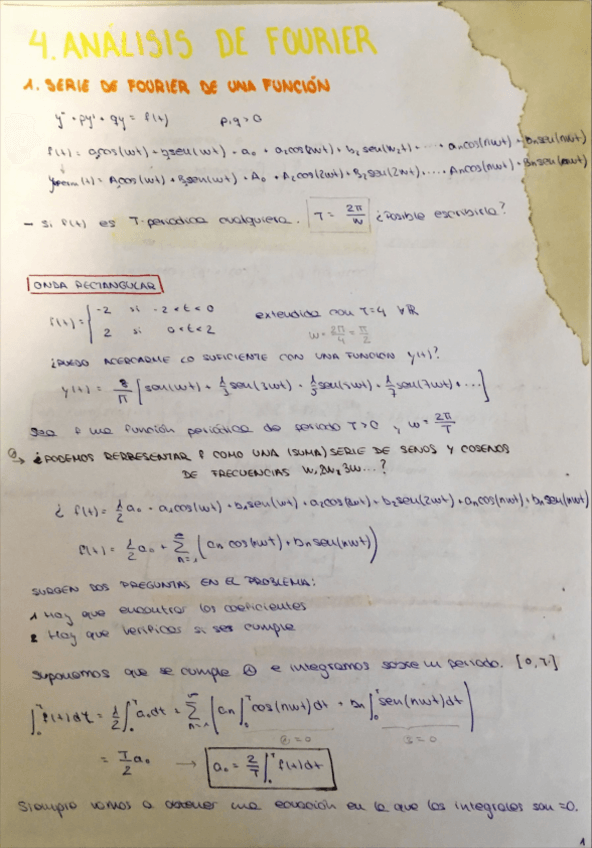 4. ANÁLISIS DE FOURIER
1. SERIE DE FOURIER DE UNA FUNCIÓN
y'' + py' + qy = f(t) p,q > 0
f(t) = a₁cos(wt) + b₁sen(wt) + a₀ + a₂cos(2wt) + b₂ sen(w₂t) + ... + aₙcos(nwt) + bₙsen(nwt)
(t) = A₁cos(wt) + B₁sen(wt) + A₀ + A₂cos(2wt) + B₂sen(2wt) + .... Aₙcos(nwt) + Bₙsen(nwt)
- Si f(t) es T-periódica cualquiera. T = 2π/w ¿Posible escribirla?
ONDA RECTANGULAR
f(t) = { -2 si -2 < t < 0
2 si 0 < t < 2
extendida con T=4 ∀ℝ
w = 2π/4 = π/2
¿PUEDO ACERCARME LO SUFICIENTE CON UNA FUNCION y(t)?
y(t) = 8/π [sen(wt) + 1/3 sen(3wt) + 1/5 sen(5wt) + 1/7 sen(7wt) + ...]
Sea f una función periódica de periodo T>0 y w = 2π/T
→ ¿PODEMOS REPRESENTAR f COMO UNA (SUMA) SERIE DE SENOS Y COSENOS
DE FRECUENCIAS W, 2W, 3W...?
¿ f(t) = 1/2 a₀ + a₁cos(wt) + b₁sen(wt) + a₂cos(2wt) + b₂sen(2wt) + aₙcos(nwt) + bₙsen(nwt)
f(t) = 1/2 a₀ + ∑ₙ₌₁^∞ (aₙ cos(nwt) + bₙ sen(nwt))
SURGEN DOS PREGUNTAS EN EL PROBLEMA:
1 Hay que encontrar los coeficientes
2 Hay que verificar si se cumple
Suponemos que se cumple e integramos sobre un periodo. [0,T]
∫₀ᵀ f(t)dt = 1/2 ∫₀ᵀ a₀dt + ∑ₙ₌₁^∞ (aₙ ∫₀ᵀ cos(nwt)dt + bₙ ∫₀ᵀ sen(nwt)dt)
= 0 = 0
= T/2 a₀ → a₀ = 2/T ∫₀ᵀ f(t)dt
Siempre vamos a obtener una ecuación en la que las integrales son =0.
1